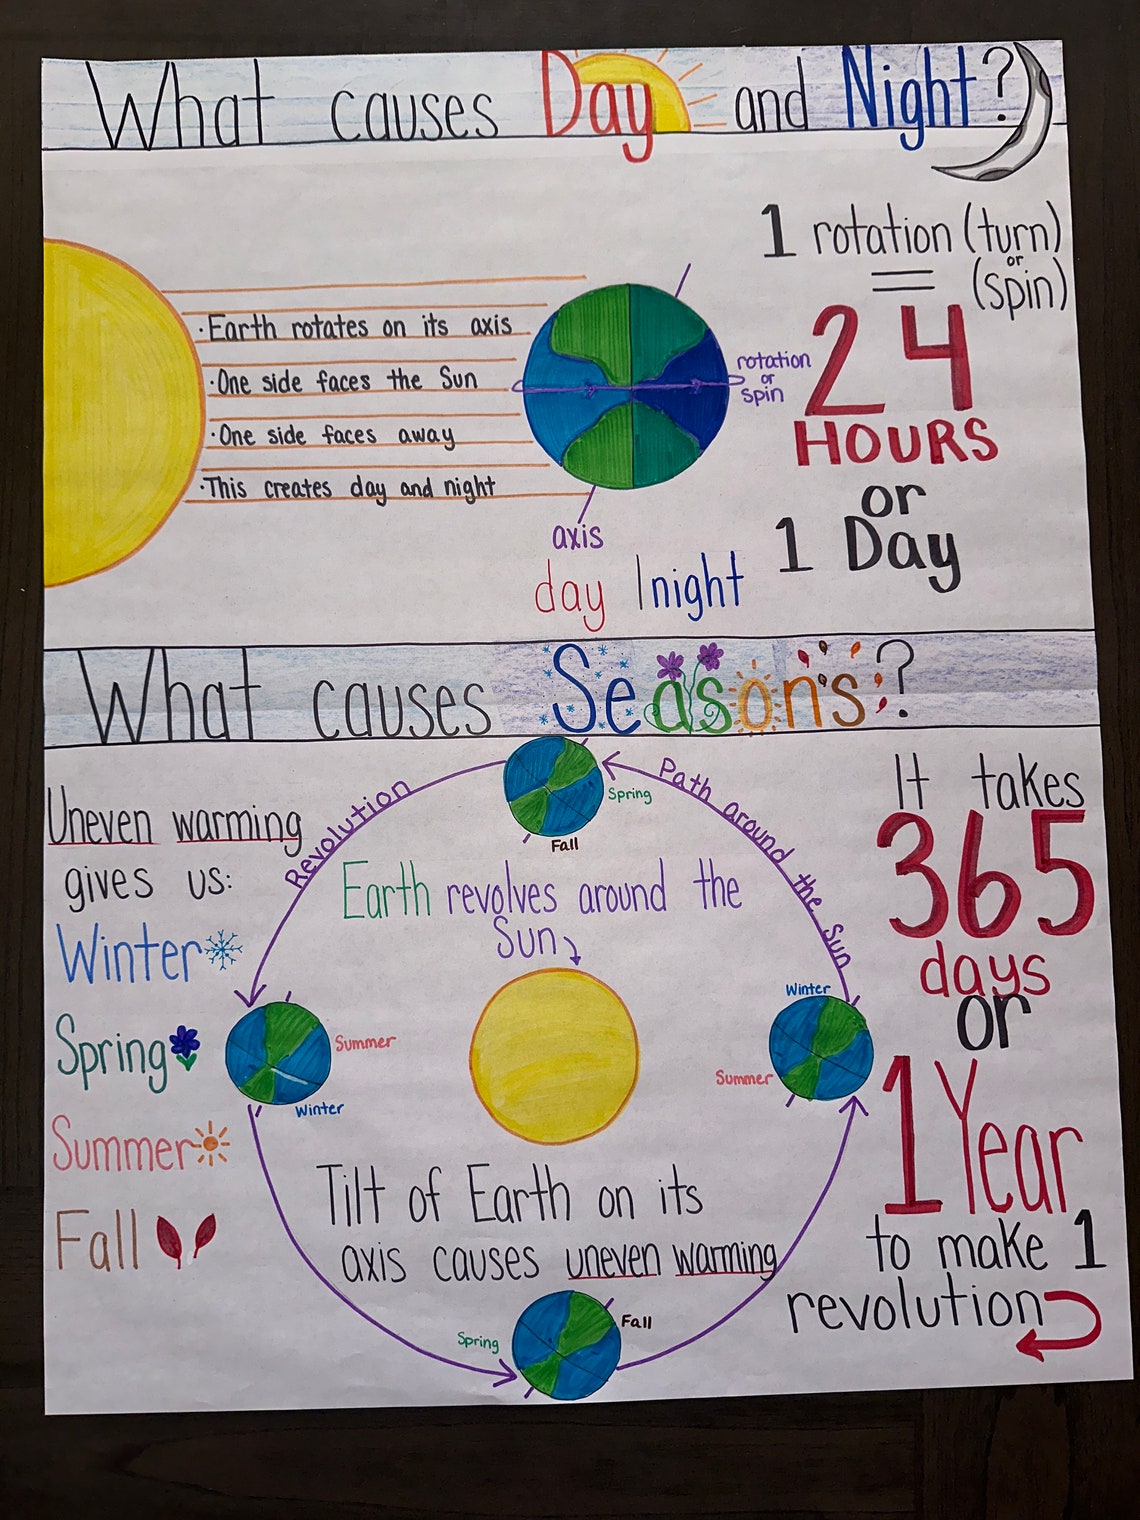 What causes Day and Night?
1 rotation (turn)
or
= (spin)
24
HOURS
or
1 Day
· Earth rotates on its axis
· One side faces the Sun
· One side faces away
· This creates day and night
rotation
or
spin
axis
day | night
What causes Seasons?
Uneven warming
gives us:
Winter
Spring
Summer
Fall
Revolution
Path around the Sun
Spring
Fall
Earth revolves around the
Sun
Summer
Winter
Winter
Summer
Tilt of Earth on its
axis causes uneven warming
Spring
Fall
It takes
365
days
or
1 Year
to make 1
revolution